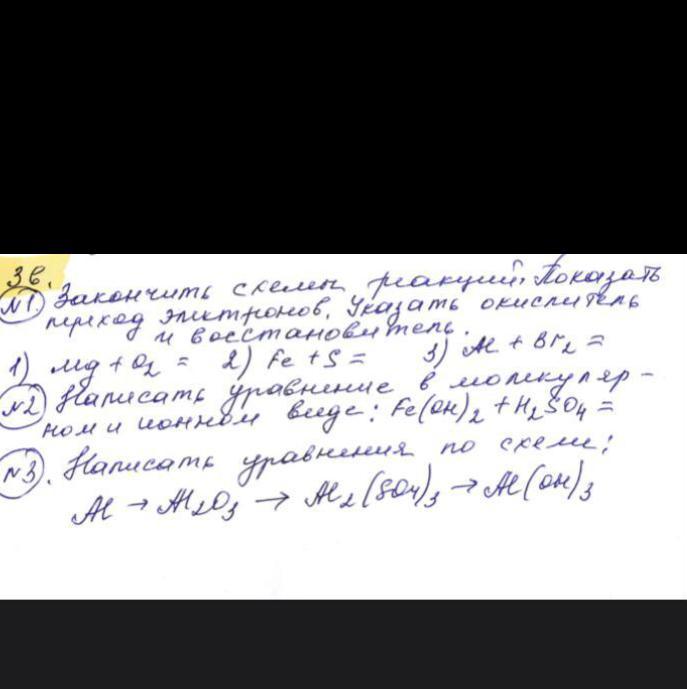 3в.
№1. Закончить схемы реакций. Показать
переход электронов. Указать окислитель
и восстановитель.
1) Mg + O₂ = 2) Fe + S = 3) Al + Br₂ =
№2 Написать уравнение в молекуляр-
ном и ионном виде: Fe(OH)₂ + H₂SO₄ =
№3. Написать уравнения по схеме:
Al → Al₂O₃ → Al₂(SO₄)₃ → Al(OH)₃